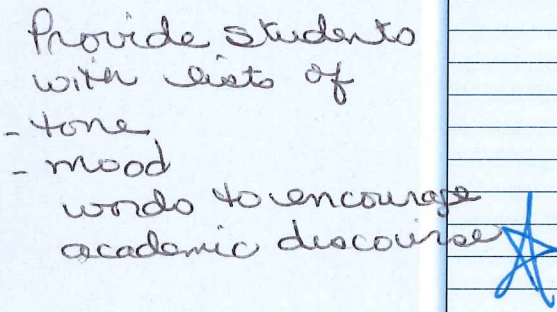 Provide students
with lists of
- tone
- mood
words to encourage
academic discourse